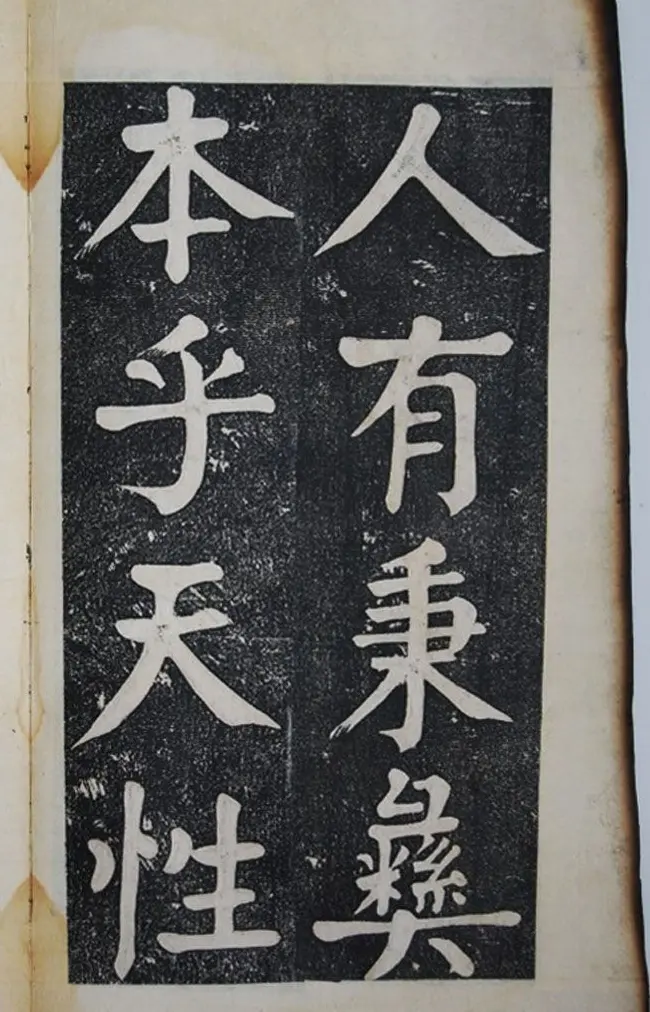 人有秉彝
本乎天性